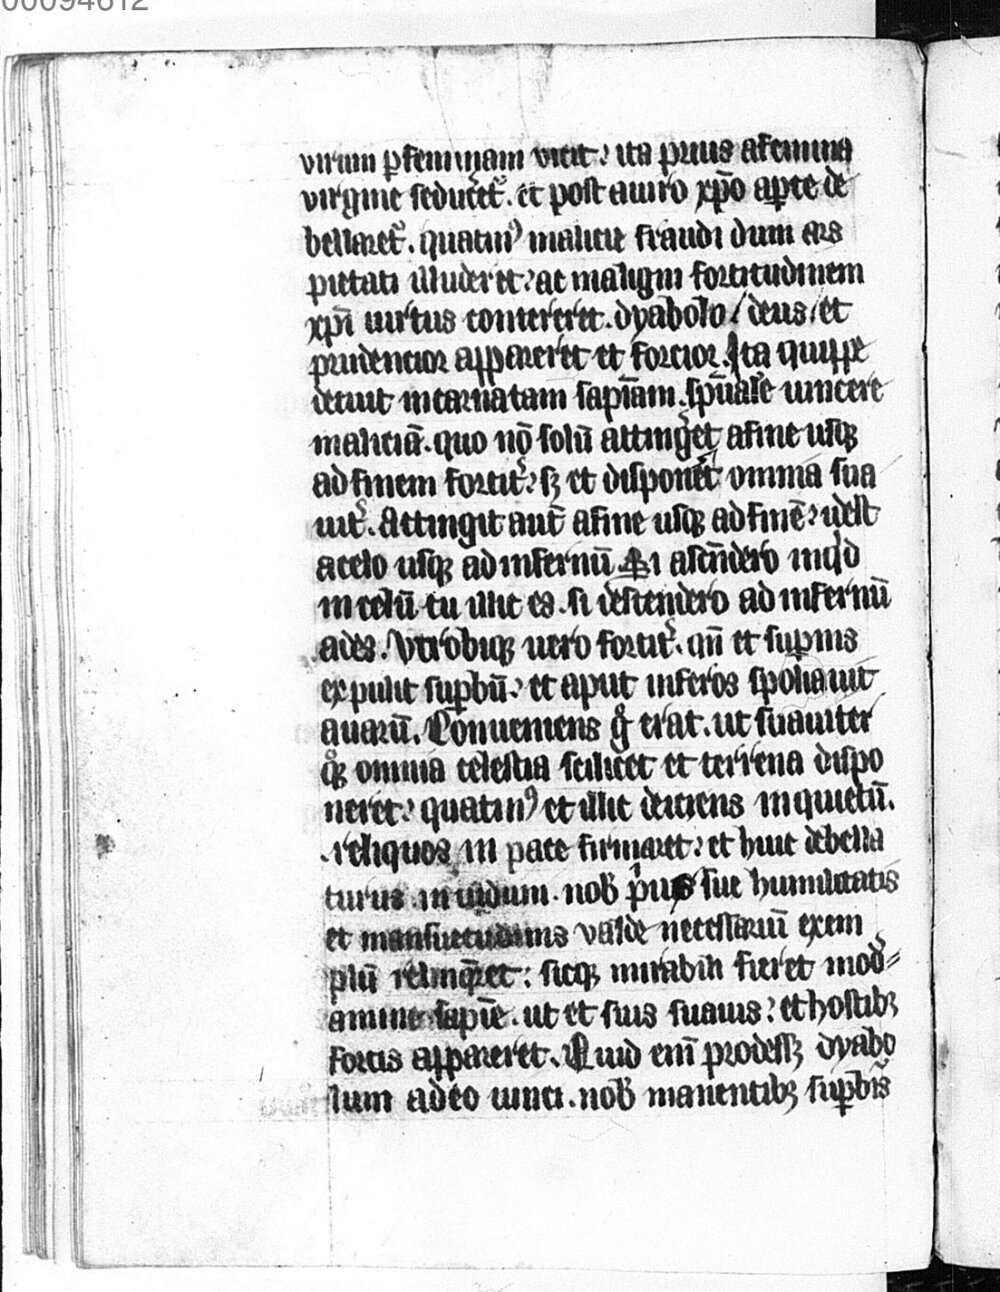 00094612
virum ꝑ feminam vicit: ita prius a femina
virgine seduceret̉. et post a uiro xp̄o aꝑte de
bellaret̉. quatinꝰ malicie fraudi dum ars
pietati illuderet: ac maligni fortitudinem
xp̄i uirtus contereret. dyabolo / deus / et
prudencior appareret et forcior. Ita quippe
decuit incarnatam sapīam. sp̄ualē uincere
maliciā. quo nō solū attingeret a fine usqꝫ
ad finem fortit̉: sꝫ et disponeret omnia sua
uit̉. Attingit aut̄ a fine usqꝫ ad finē: idest
a celo usqꝫ ad infernū. Si ascēdero inqͥd
in celū tu illic es. si descendero ad infernū
ades. Vtrobiqꝫ uero fortit̉. qn̄ et suꝑnis
expulit suꝑbū: et aput inferos spoliauit
auarū. Conueniens gͦ erat. ut suauiter
qͦqꝫ omnia celestia scilicet et terrena dispo
neret: quatinꝰ et illic deiciens inquietū.
reliquos in pace firmaret: et huic debella
turus inuidum. nob̄ prius sue humilitatis
et mansuetudinis valde necessariū exem
plū relinqͤret: sicqꝫ mirabili fieret mod⸗
amine sapīe. ut et suis suauis: et hostibꝫ
fortis appareret. Quid enī prodessꝫ dyabo
lum a deo uinci. nob̄ manentibꝫ suꝑbis